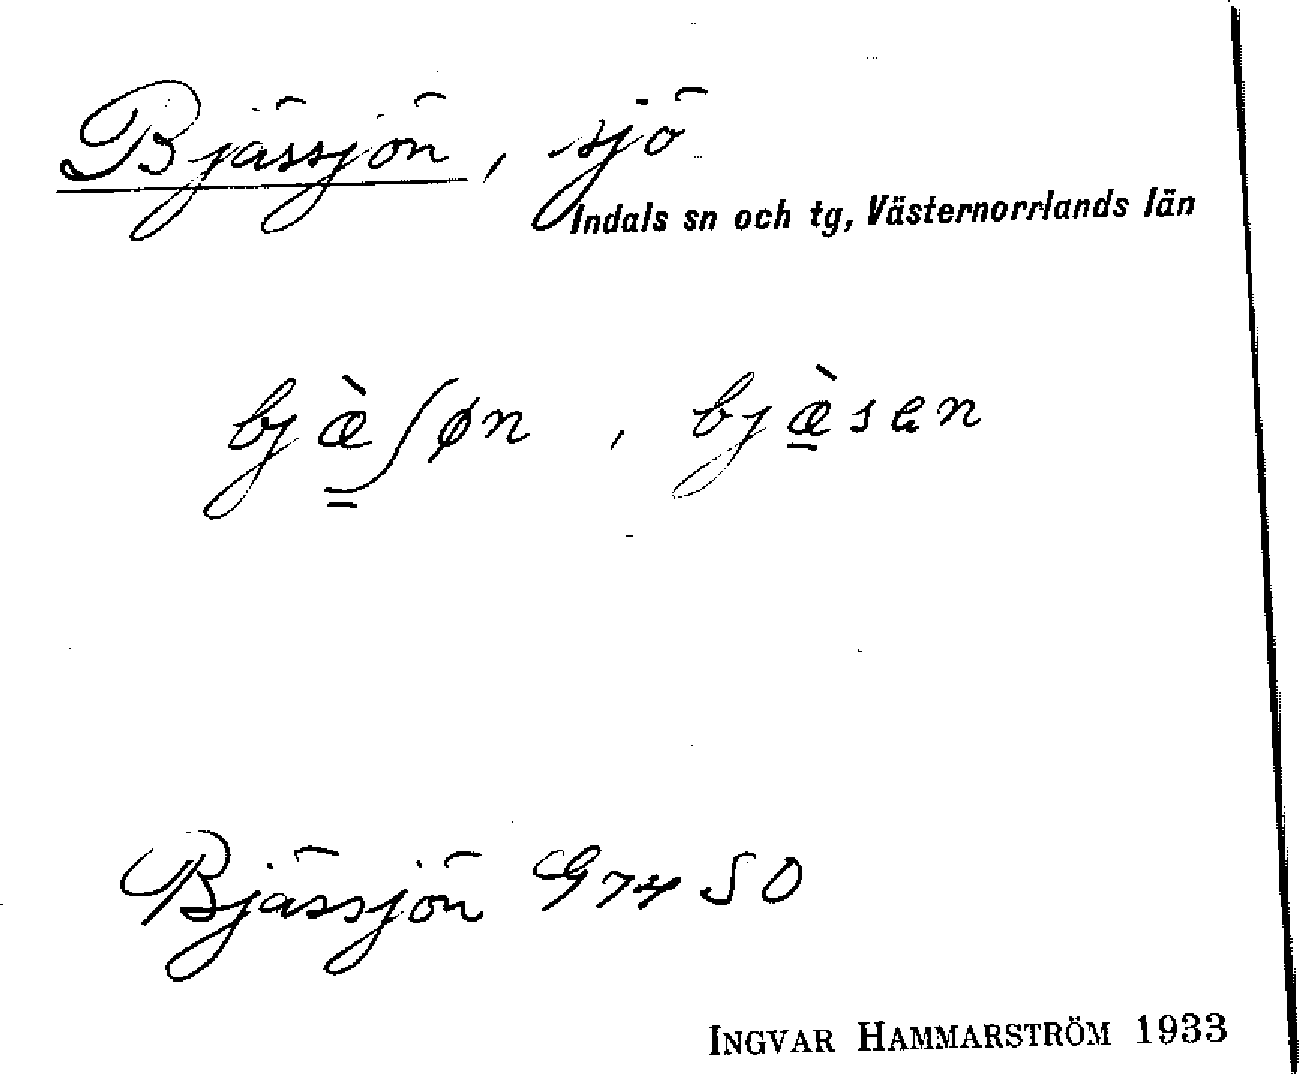 Bjässjön, sjö
Indals sn och tg, Västernorrlands län
bjæ̀ʃøn, bjæ̀sen
Bjässjön G74 SO
INGVAR HAMMARSTRÖM 1933